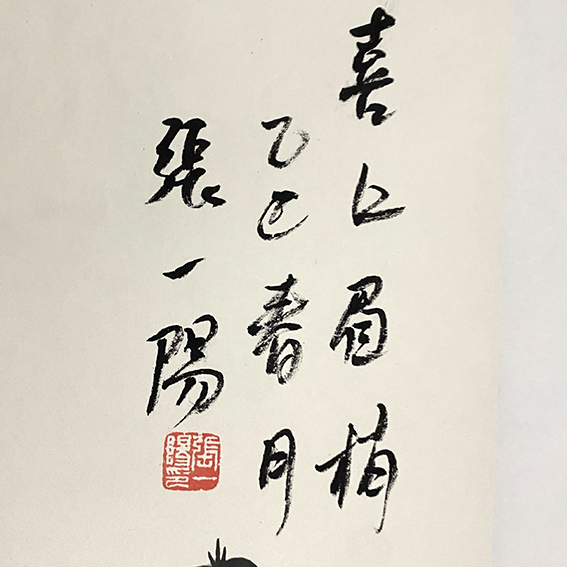 喜上眉梢
乙巳春月
張一陽
張一陽印